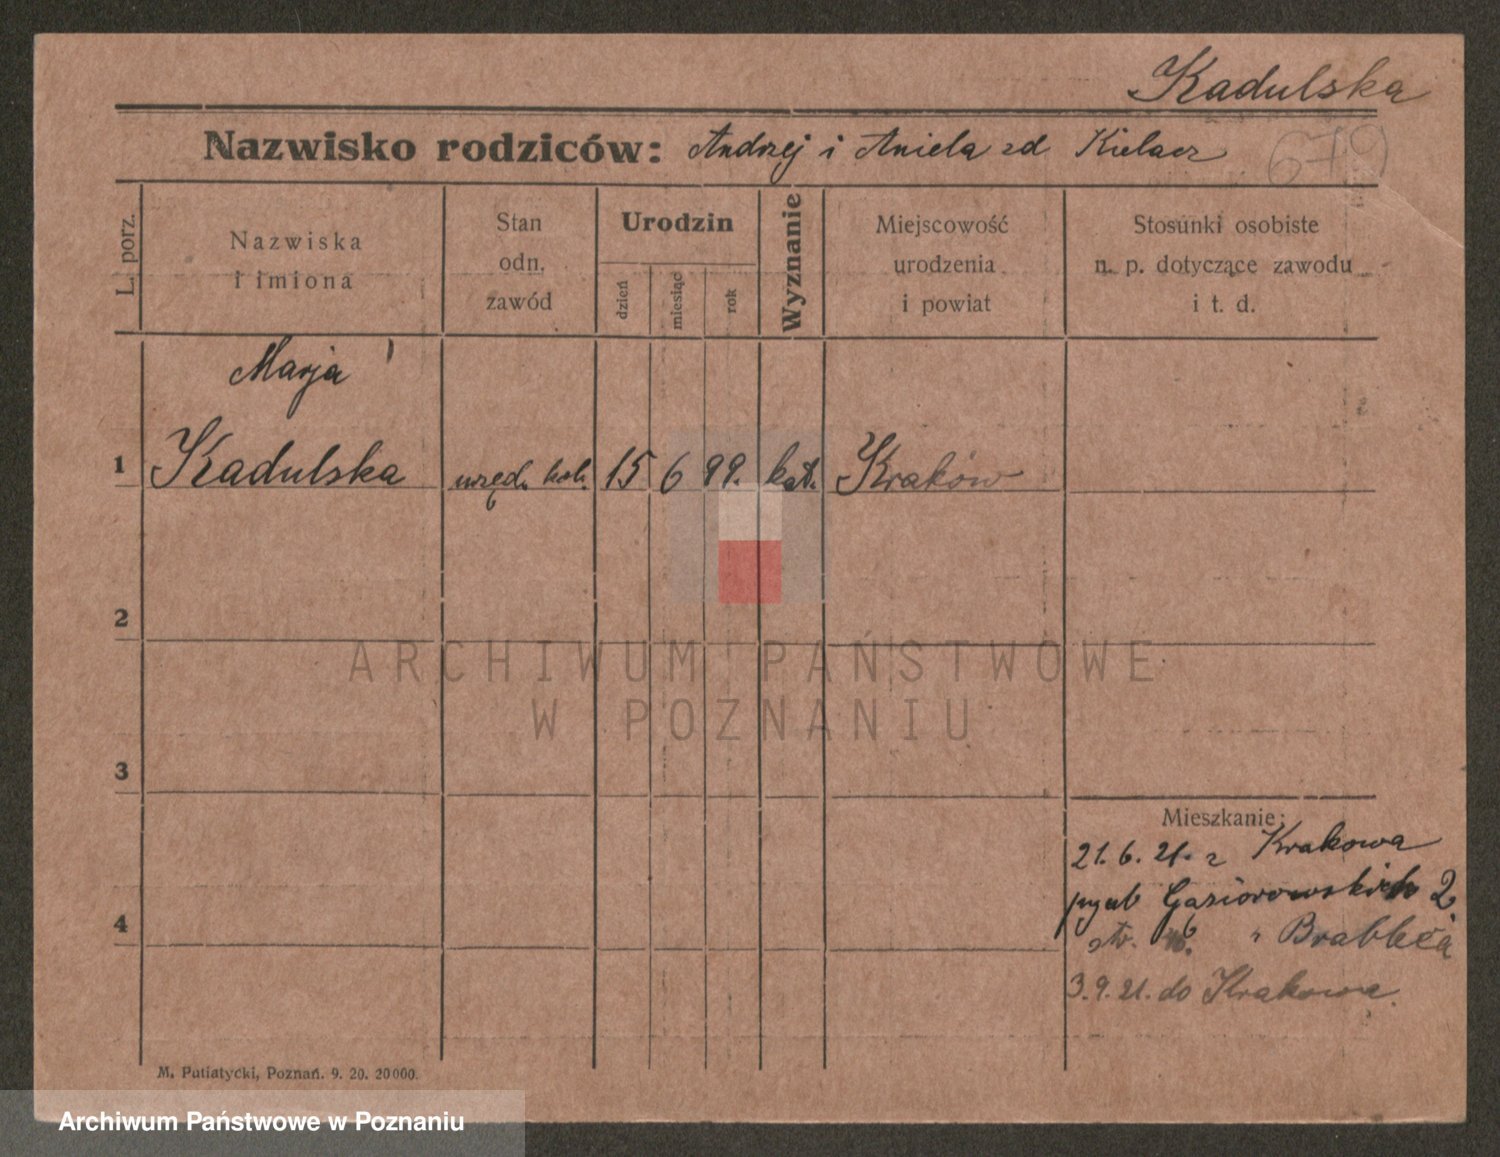 Kadulska
Nazwisko rodziców: Andrzej i Aniela zd Kielacz
679
L. porz.
Nazwiska
i imiona
Stan
odn.
zawód
Urodzin
dzień
miesiąc
rok
Wyznanie
Miejscowość
urodzenia
i powiat
Stosunki osobiste
n. p. dotyczące zawodu
i t. d.
Marja
1 Kadulska urzęd. kol. 15 6 99. kat. Kraków
2
3
4
Mieszkanie:
21. 6. 21. z Krakowa
Gąsiorowskich 2
str.
3. 9. 21. do Krakowa.
M. Putiatycki, Poznań. 9. 20. 20000.
ARCHIWUM PAŃSTWOWE
W POZNANIU
Archiwum Państwowe w Poznaniu